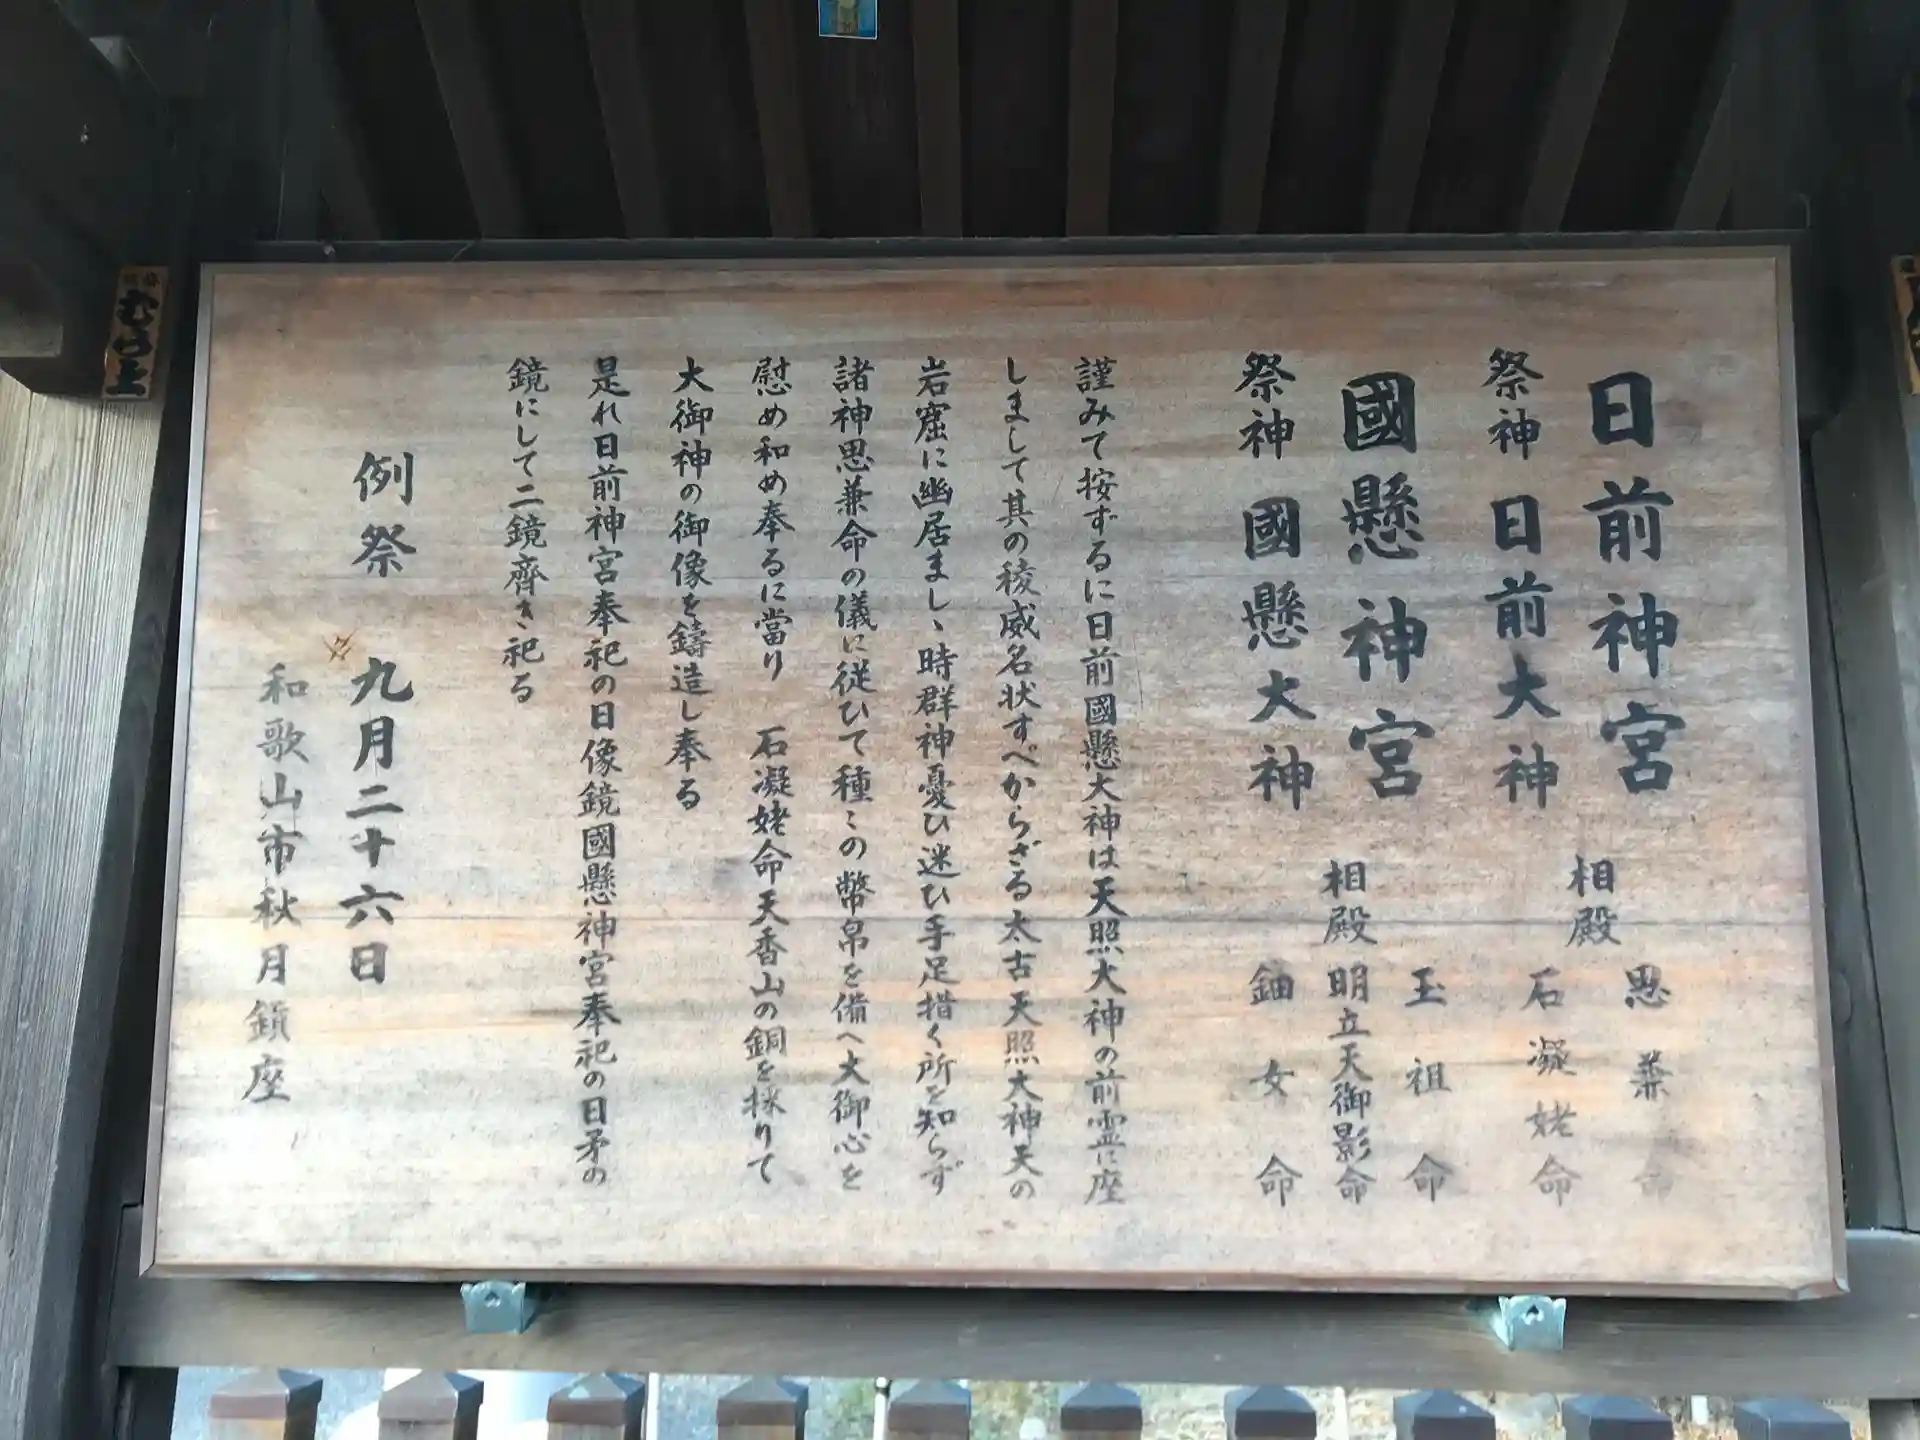 日前神宮
祭神 日前大神
相殿
思兼命
石凝姥命
國懸神宮
祭神 國懸大神
相殿
玉祖命
明立天御影命
鈿女命
謹みて按ずるに日前國懸大神は天照大神の前霊に座
しまして其の稜威名状すべからざる太古天照大神天の
岩窟に幽居ましゝ時群神憂ひ迷ひ手足措く所を知らず
諸神思兼命の儀に従ひて種々の幣帛を備へ大御心を
慰め和め奉るに當り 石凝姥命天香山の銅を採りて
大御神の御像を鑄造し奉る
是れ日前神宮奉祀の日像鏡國懸神宮奉祀の日矛の
鏡にして二鏡齊き祀る
例祭 九月二十六日
和歌山市秋月鎮座
むら上